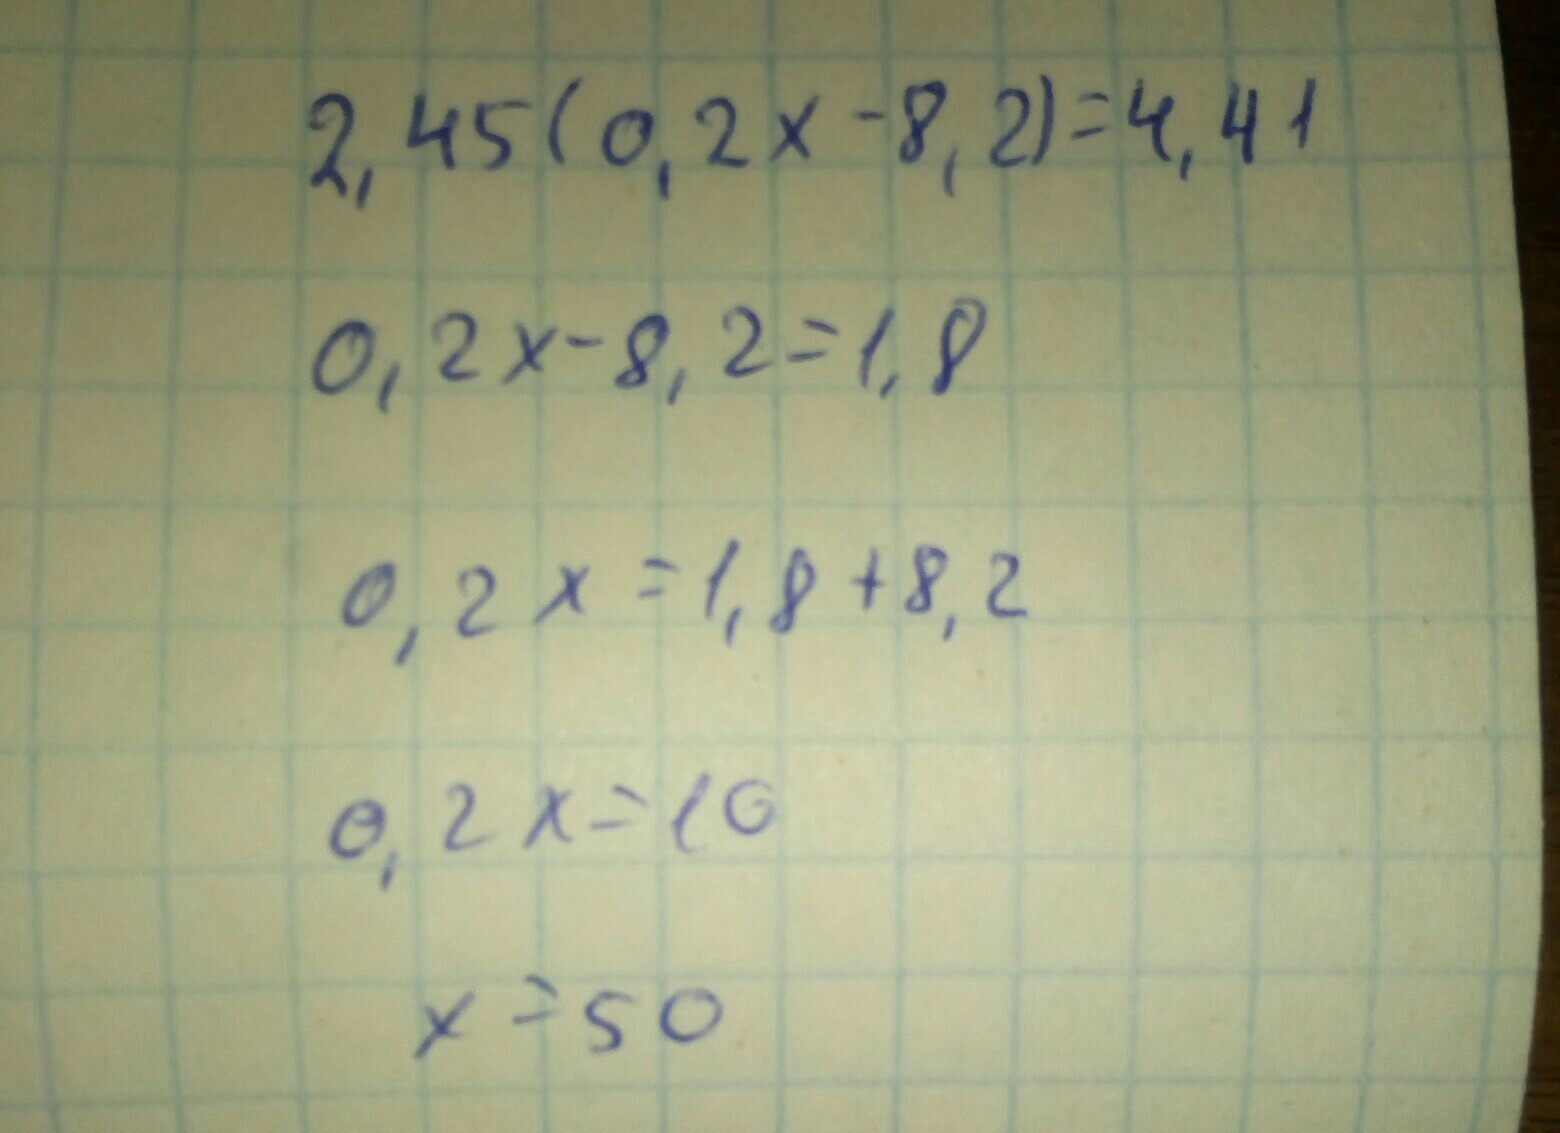 2,45(0,2x-8,2)=4,41
0,2x-8,2=1,8
0,2x=1,8+8,2
0,2x=10
x=50